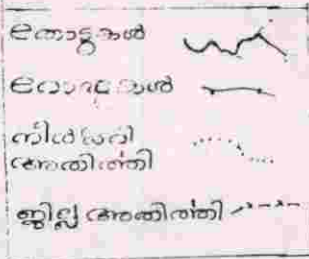 തോടുകൾ
റോഡുകൾ
നീർമറി
അതിർത്തി
ജില്ല അതിർത്തി